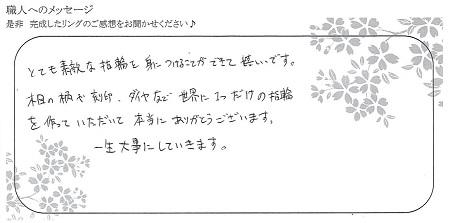 職人へのメッセージ
是非 完成したリングのご感想をお聞かせください♪
とても素敵な指輪を身につけることができて嬉しいです。
木目の柄や刻印、ダイヤなど世界に1つだけの指輪
を作っていただいて本当にありがとうございます。
一生大事にしていきます。